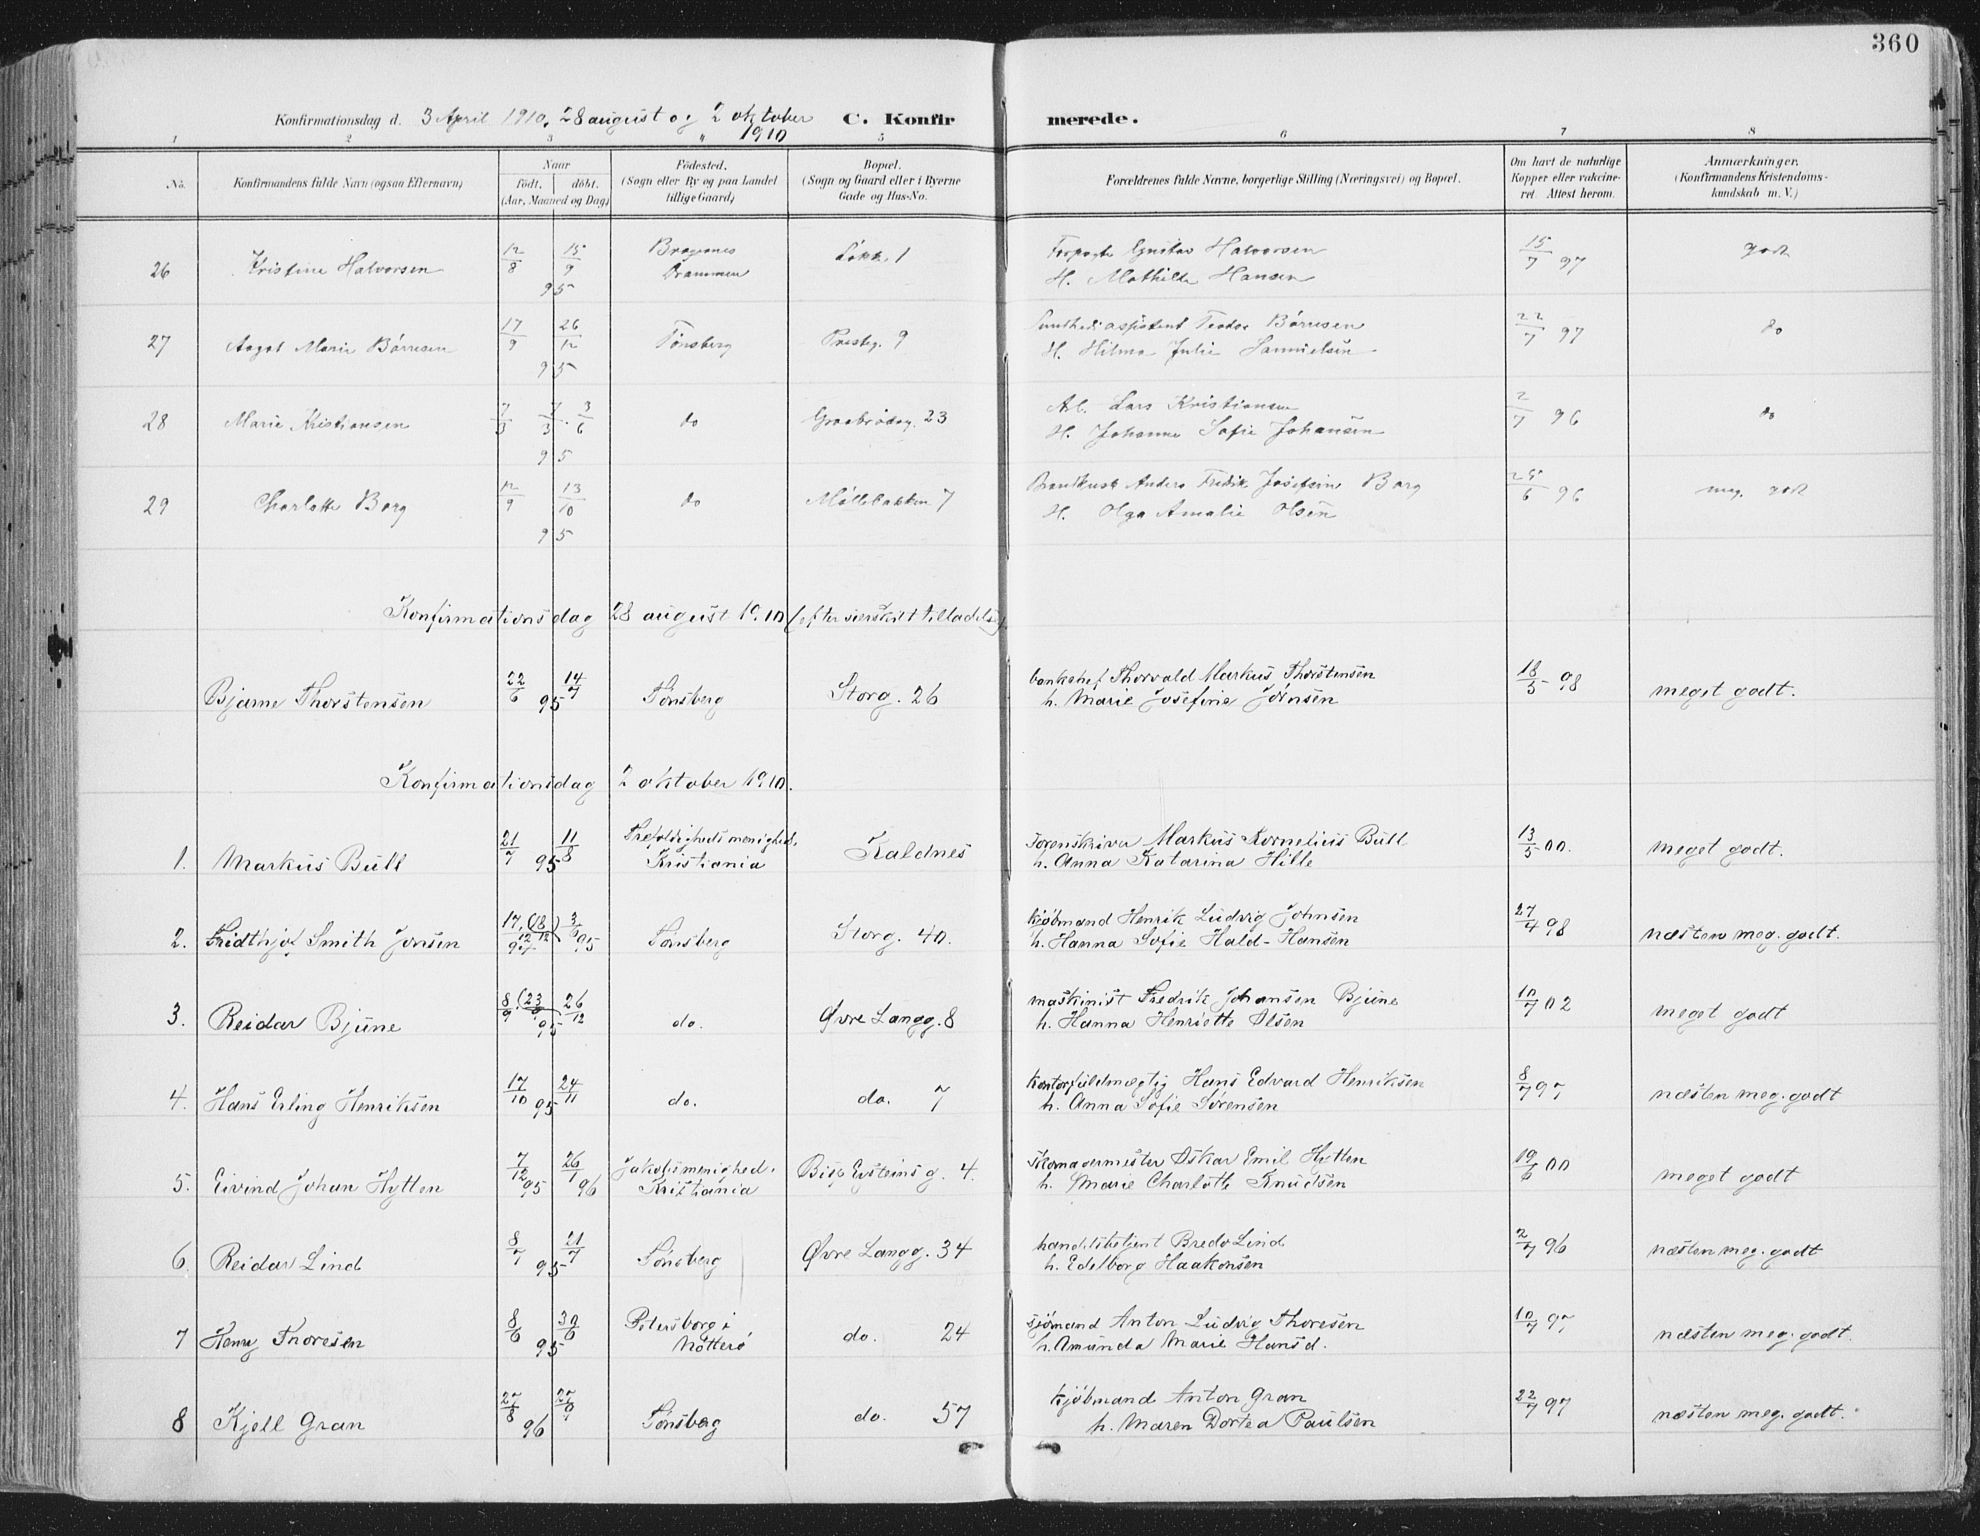 360
Konfirmationsdag d. 3 April 1910, 28 august og 2 oktober 1910
C. Konfirmerede.
1 2 3 4 5 6 7 8
No. Konfirmandens fulde Navn (ogsaa Efternavn) Naar født. døbt. (Aar, Maaned og Dag) Fødested. (Sogn eller By og paa Landet tillige Gaard) Bopæl. (Sogn og Gaard eller i Byerne Gade og Hus-No. Forældrenes fulde Navne, borgerlige Stilling (Næringsvei) og Bopæl. Om havt de naturlige Kopper eller vakcineret. Attest herom. Anmærkninger. (Konfirmandens Kristendomskundskab m. V.)
26 Kristine Halvorsen 12/8 15/9 95 Bragernes Drammen Løkk. 1 Gustav Halvorsen 15/7 97 godt
H. Mathilde Hansen
27 Aagot Marie Børresen 17/9 26/12 95 Tønsberg Prestg. 9 Teodor Børresen 22/7 97 do
H. Hilma Julie Samuelsen
28 Marie Kristiansen 7/3 7/3. 3/6 95 do Graabrødrg. 23 Arb. Lars Kristiansen 2/7 96 do
H. Johanne Sofie Johansen
29 Charlotte Borg 12/9 13/10 95 do Møllebakken 7 Anders Fredrik Josefsen Borg 25/6 96 meg. godt
H. Olga Amalie Olsen
Konfirmationsdag 28 august 1910 (efter særskilt tilladelse)
Bjarne Thorstensen 22/6 95 14/7 Tønsberg Storg. 26 bankchef Thorvald Markus Thorstensen 18/5 98 meget godt.
h. Marie Josefine Jørnsen
Konfirmationsdag 2 oktober 1910.
1. Markus Bull 21/7 95 11/8 Trefoldighedsmenighed. Kristiania Kaldnes sorenskriver Markus Kornelius Bull 13/5 00. meget godt.
h. Anna Katarina Hille
2. Fridthjof Smith Jonsen 17/12 (18/12) 94 3/6 95 Tønsberg Storg. 40. kjøbmand Henrik Ludvig Johnsen 27/4 98 næsten meg. godt.
h. Hanna Sofie Hald-Hansen
3. Reidar Bjune 8/9 (23/9) 95 26/12 do. Øvre Langg. 8 maskinist Fredrik Johansen Bjune 10/7 02 meget godt
h. Hanna Henriette Olsen
4. Hans Erling Henriksen 17/10 95 24/11 do. do. 7 kontorfuldmægtig Hans Edvard Henriksen 8/7 97 næsten meg. godt
h. Anna Sofie Sørensen
5. Eivind Johan Hytten 7/12 95 26/1 96 Jakobsmenighed. Kristiania Bisp Eysteins g. 4. skomagermester Oskar Emil Hytten 19/6 00 meget godt
h. Marie Charlotte Knudsen
6 Reidar Lind 8/7 95 21/7 Tønsberg Øvre Langg. 34 handelsbetjent Bredo Lind 2/7 96 næsten meg. godt
h. Edelborg Haakonsen
7 Henry Thoresen 8/6 95 30/6 Petersborg i Nøtterø do. 24 sjømand Anton Ludvig Thoresen 10/7 97 næsten meg. godt.
h. Amunda Marie Hansd.
8 Kjell Gran 27/8 96 Tønsberg do. 57 kjøbmand Anton Gran 22/7 97 næsten meg. godt.
h. Maren Dortea Paulsen